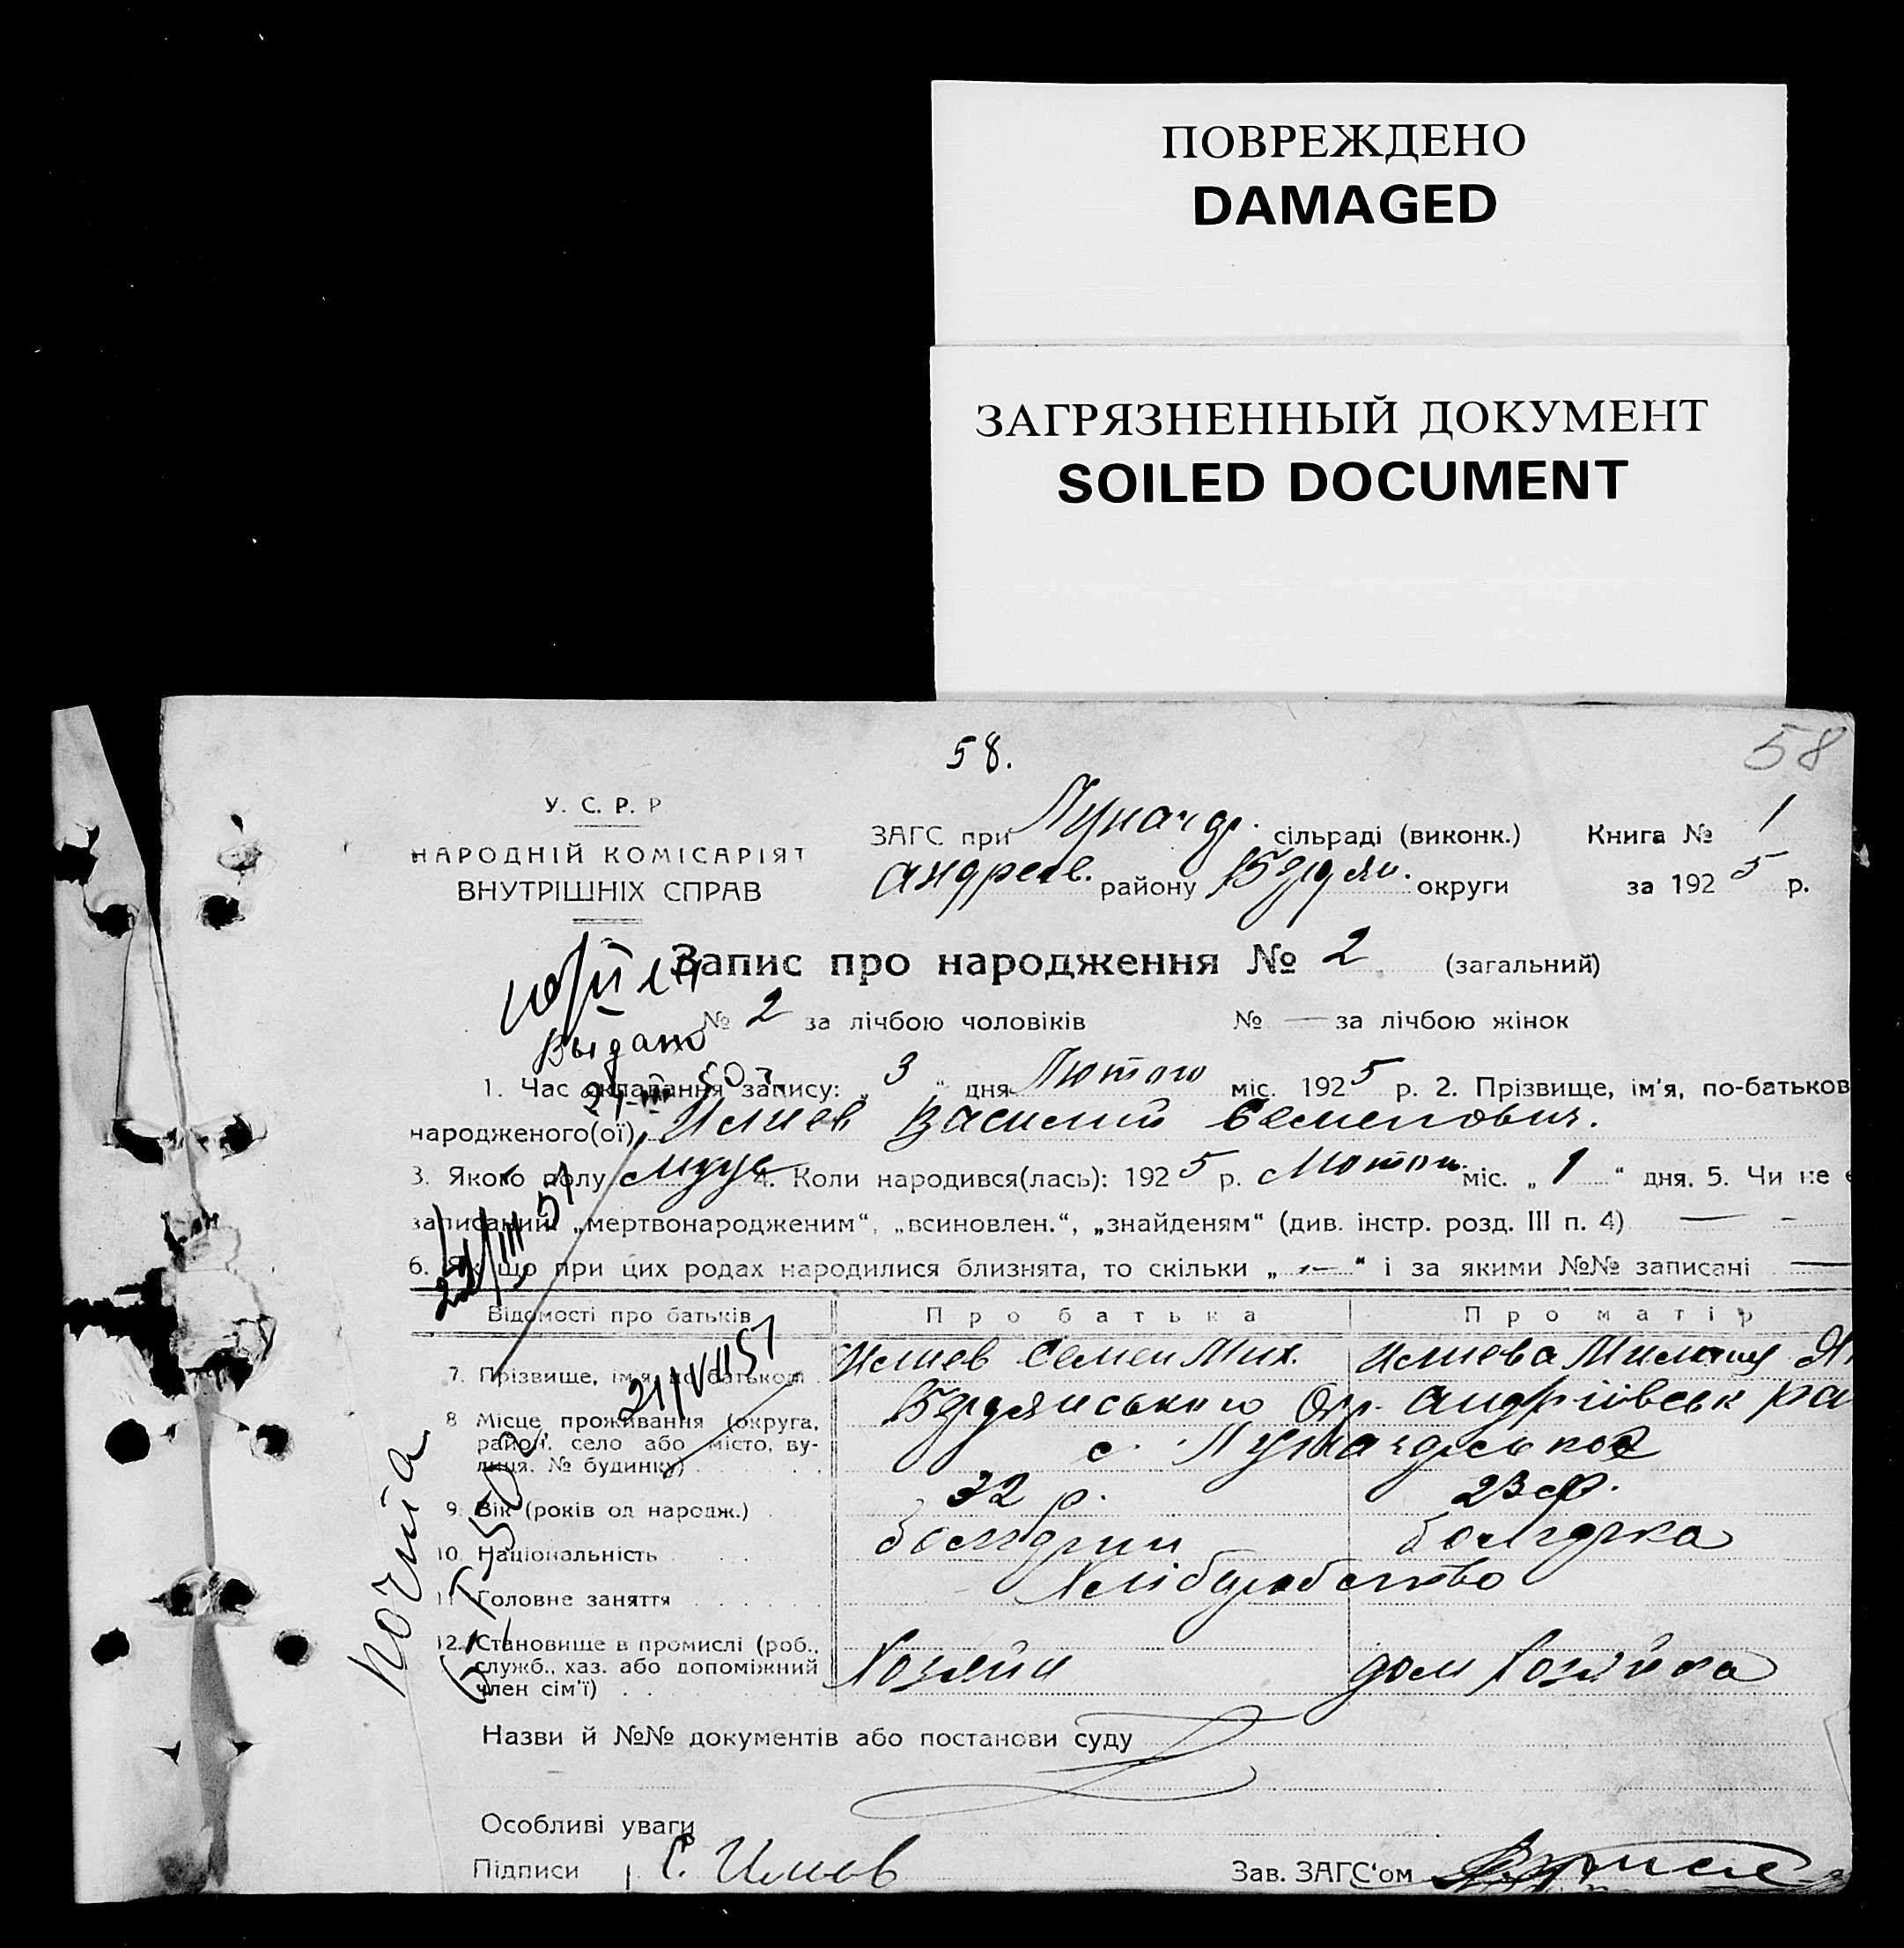 ПОВРЕЖДЕНО
DAMAGED
ЗАГРЯЗНЕННЫЙ ДОКУМЕНТ
SOILED DOCUMENT
58.
58
У. С. Р. Р
НАРОДНІЙ КОМІСАРІЯТ
ВНУТРІШНІХ СПРАВ
ЗАГС при Луначар. сільраді (виконк.) Книга № 1
Андреев. району Бердян. округи за 1925 р.
Запис про народження № 2 (загальний)
№ 2 за лічбою чоловіків № — за лічбою жінок
Выдано
1. Час складання запису: „ 3 “ дня Лютого міс. 1925 р. 2. Прізвище, ім'я, по-батьков
народженого(ої) Илиев Василий Семенович.
3. Якого полу муж 4. Коли народився(лась): 1925 р. Лютого міс. „ 1 “ дня. 5. Чи не є
записаний „мертвонародженим“, „всиновлен.“, „знайденям“ (див. інстр. розд. III п. 4) —
6. Як що при цих родах народилися близнята, то скільки „ — “ і за якими №№ записані —
Відомості про батьків Про батька Про матір
7. Прізвище, ім'я, по батькові Илиев Семен Мих. Илиева
21/VII 51
8 Місце проживання (округа, район, село або місто, вулиця, № будинку) Бердянського Окр. Андріївськ ра
с. Луначарьское
9. Вік (років од народж.) 32 р. 23 р.
10. Національність болгарин болгарка
11 Головне заняття Хліборобство
12. Становище в промислі (роб., служб., хаз. або допоміжний член сім'ї) Хозяйн дом Хозяйка
Копия
Назви й №№ документів або постанови суду
Особливі уваги
Підписи С. Илиев Зав. ЗАГС'ом